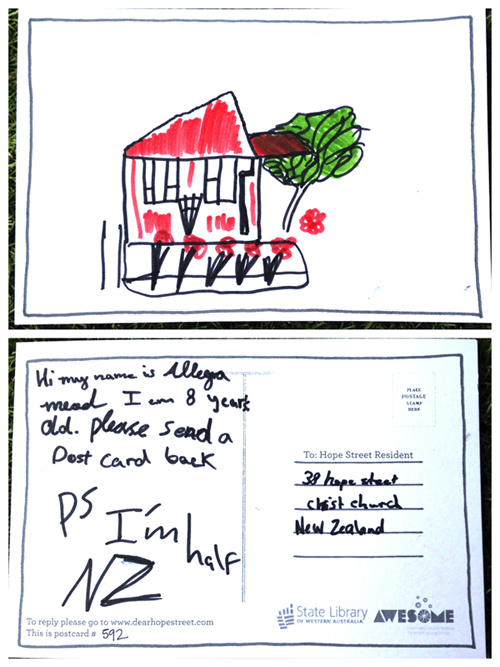 Hi my name is Allegra
mead I am 8 years
old. please send a
Post card back
PS
I'm half
NZ
PLACE
POSTAGE
STAMP
HERE
To: Hope Street Resident
38 hope street
christ church
New Zealand
To reply please go to www.dearhopestreet.com
This is postcard # 592
State Library
OF WESTERN AUSTRALIA
AWESOME